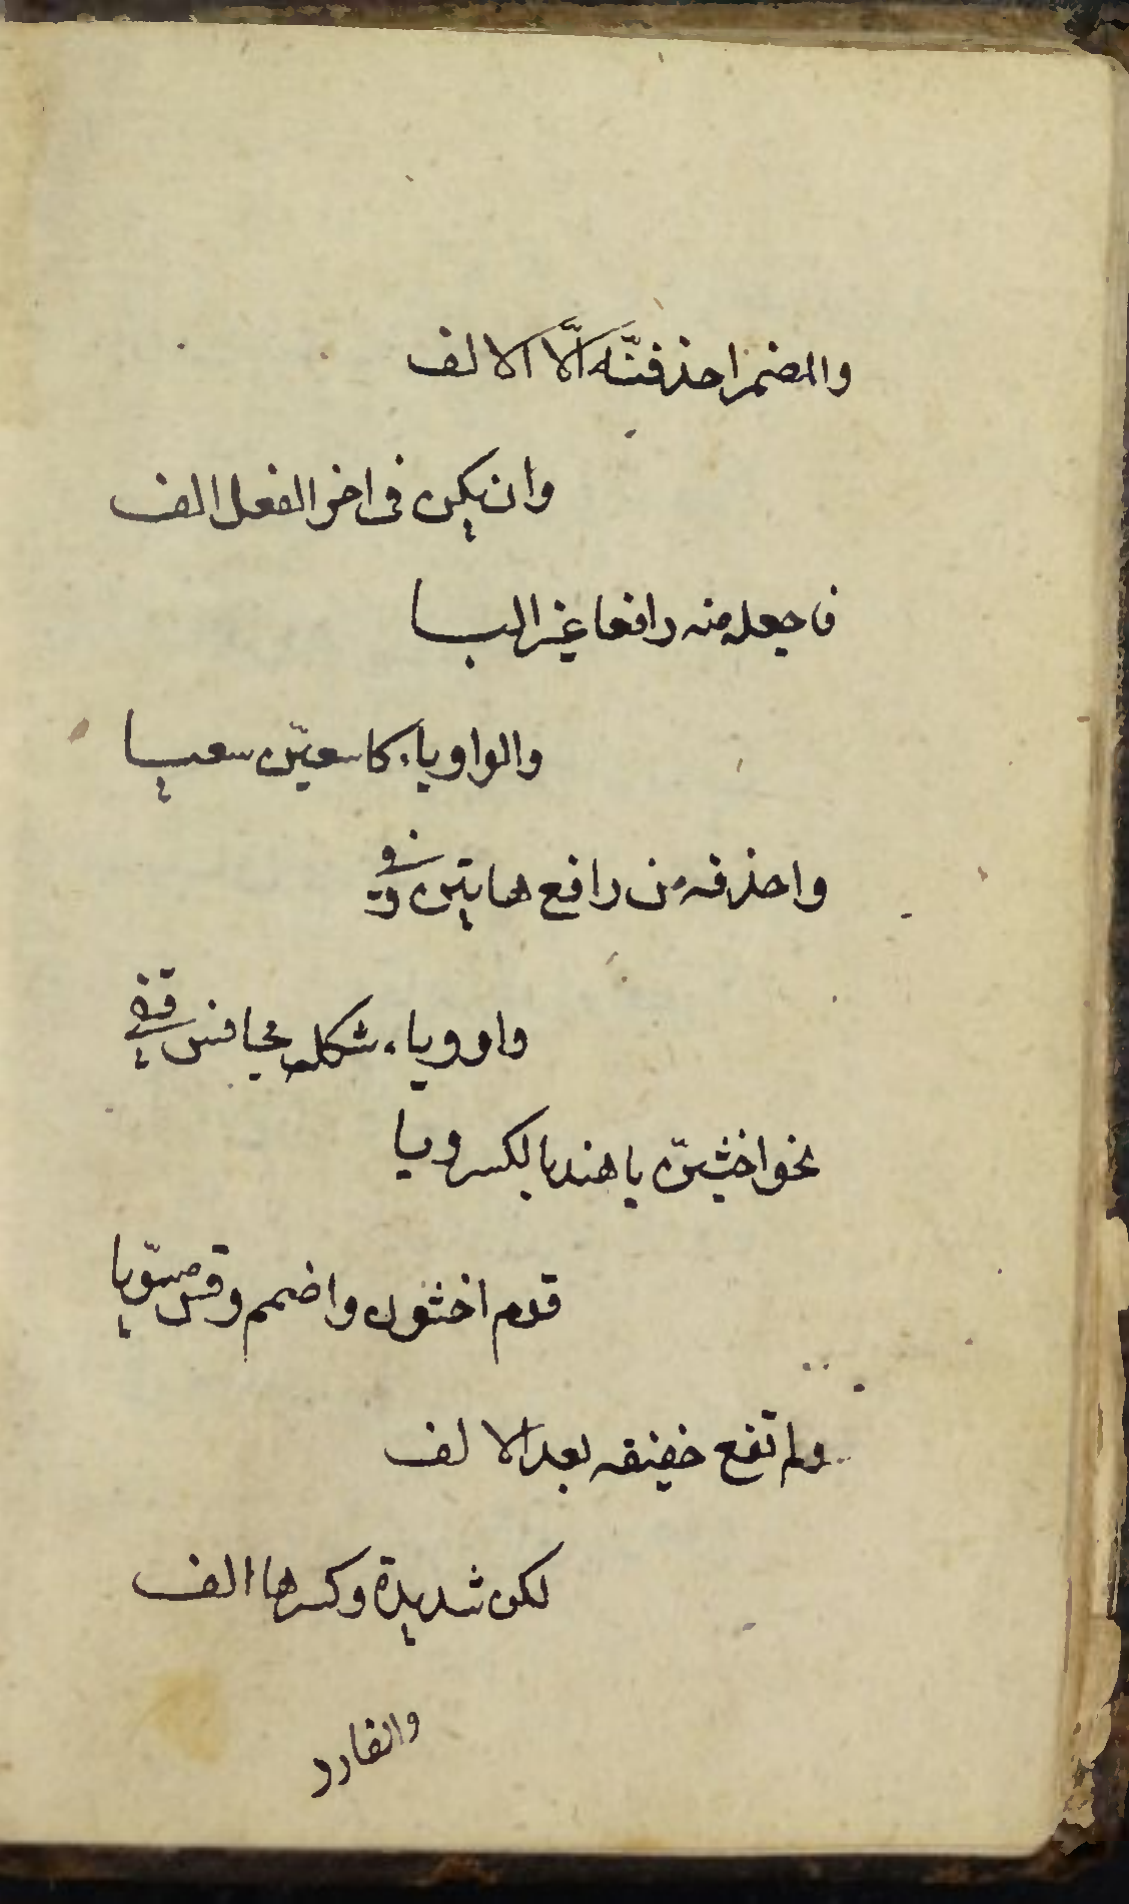 والمضمر احذفنّه الّا الالف
وان يكن فى اخر الفعل الف
فاجعله منه رافعا غير اليا
والواو ياء كاسعينّ سعيا
واحذفه من رافع هاتين وفى
واو وياء شكل مجانس قفى
نحو اخشينّ يا هند بالكسر ويا
قوم اخشون واضمم وقس مسوّيا
ولم تقع خفيفه بعد الالف
لكن شديدة وكسرها الف
والفا رد